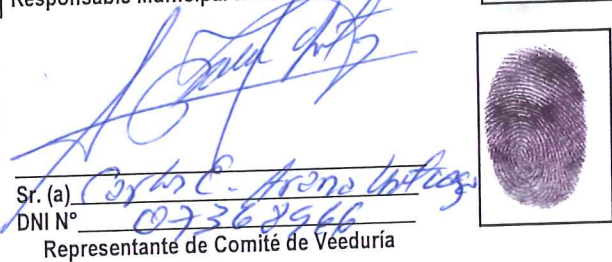 Responsable Municipal
Sr. (a) Carlos E. Arana
DNI N° 07368966
Representante de Comité de Veeduría